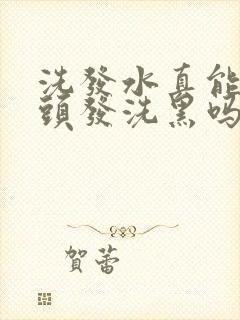 洗發水真能
頭發洗黑嗎
賀蕾